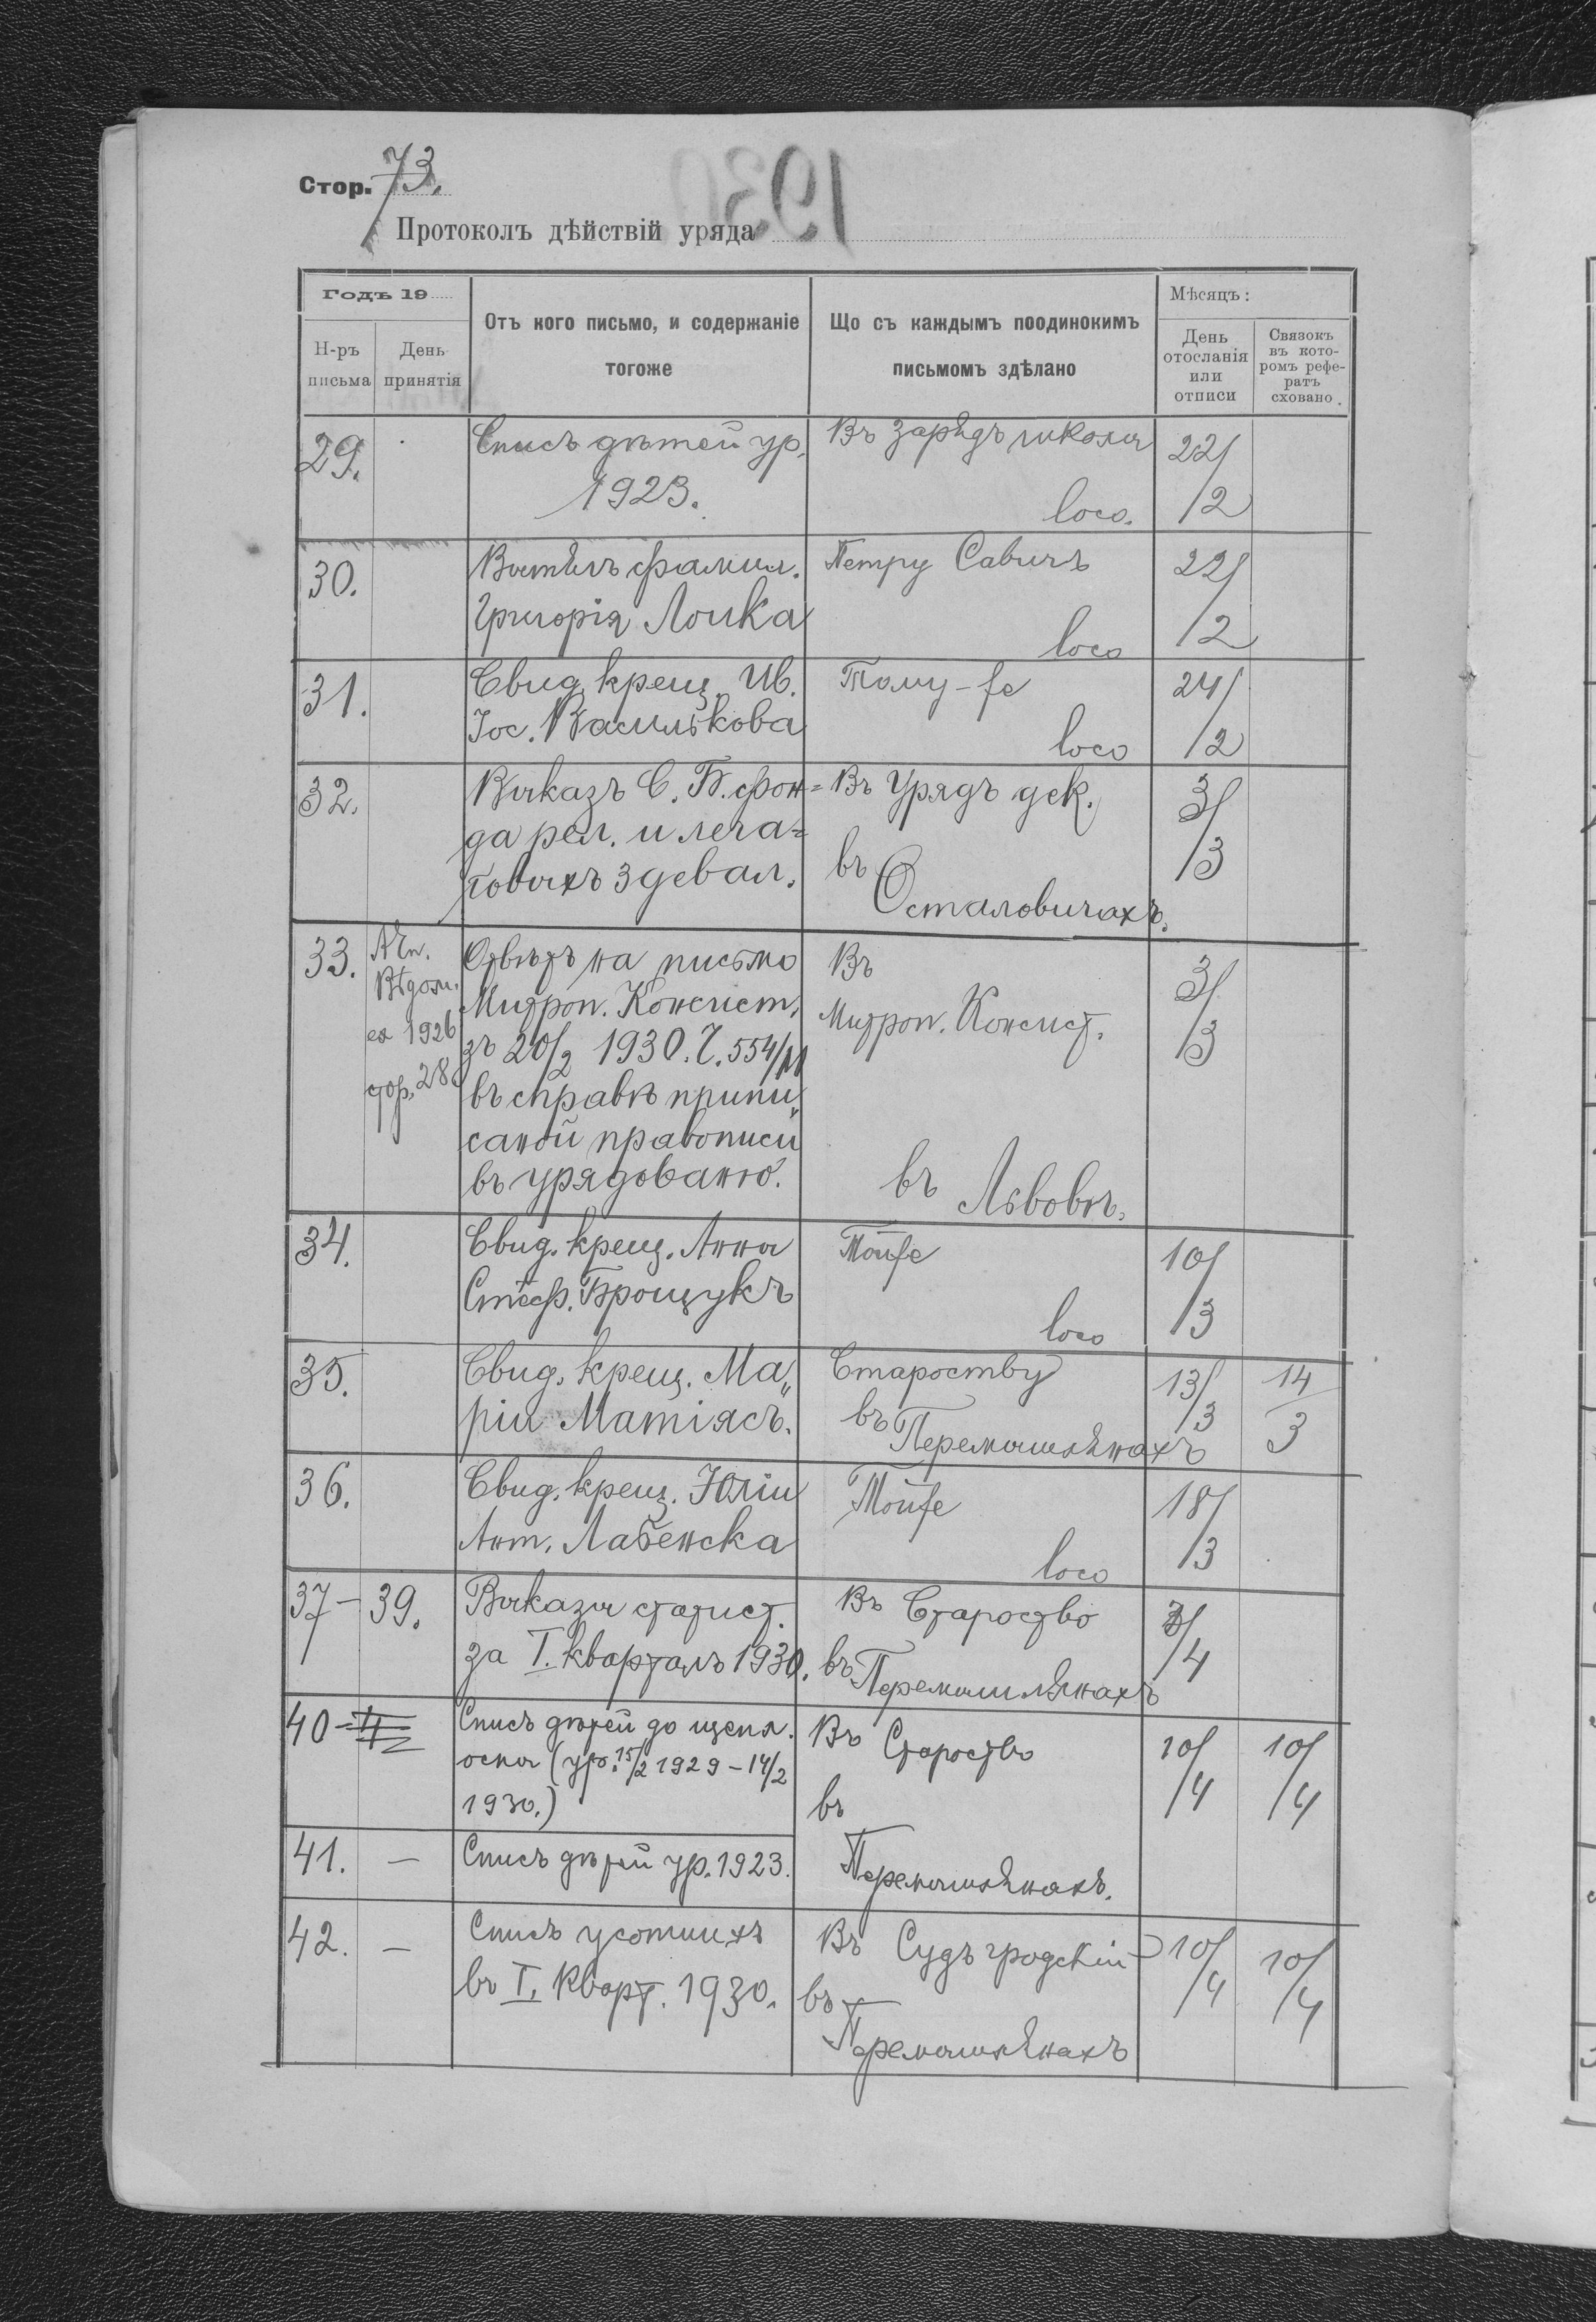 Стор. 73.
1930
Протоколъ дѣйствій уряда
Годъ 19
Н-ръ письма
День принятія
Отъ кого письмо, и содержаніе
тогоже
Що съ каждымъ поодинокимъ
письмомъ здѣлано
Мѣсяцъ:
День
отосланія
или
отписи
Связокъ
въ кото-
ромъ рефе-
ратъ
сховано.
29.
Списъ дѣтей ур.
1923.
Въ зарядъ школы
loco.
22/2
30.
Вытягъ фамил.
Григорія Лоика
Петру Савичъ
loco
22/2
31.
Свид. крещ. Ив.
Іос. Василькова
Тому-же
loco
24/2
32.
Выказъ С. Б. фон=
да рел. и лега=
товыхъ з девал.
Въ Урядъ дек.
въ
Осталовичахъ.
3/3
33.
Вѣдом.
ея 1926
стор. 28
Отвѣтъ на письмо
Митроп. Консист.
зъ 20/2 1930. Ч. 554/
въ справѣ припи„
саной правописи
въ урядованю.
Въ
Митроп. Консист.
въ Львовѣ.
3/3
34.
Свид. крещ. Анны
Стеф. Брощукъ
Тойже
loco
10/3
35.
Свид. крещ. Ма„
ріи Матіясъ.
Староству
въ
Перемышлянахъ
13/3
14/3
36.
Свид. крещ. Юліи
Ант. Лабенска
Тойже
loco
18/3
37 - 39.
Выказы статист.
за I. кварталъ 1930.
Въ Староство
въ Перемышлянахъ
3/4
40
Списъ дѣтей до щепл.
оспы (ур. 15/2 1929 - 14/2
1930.)
Въ Староство
въ
Перемышлянахъ.
10/4
10/4
41. -
Списъ дѣтей ур. 1923.
42. -
Списъ усопшихъ
въ I. Кварт. 1930.
Въ Судъ гродскій
въ
Перемышлянахъ
10/4
10/4